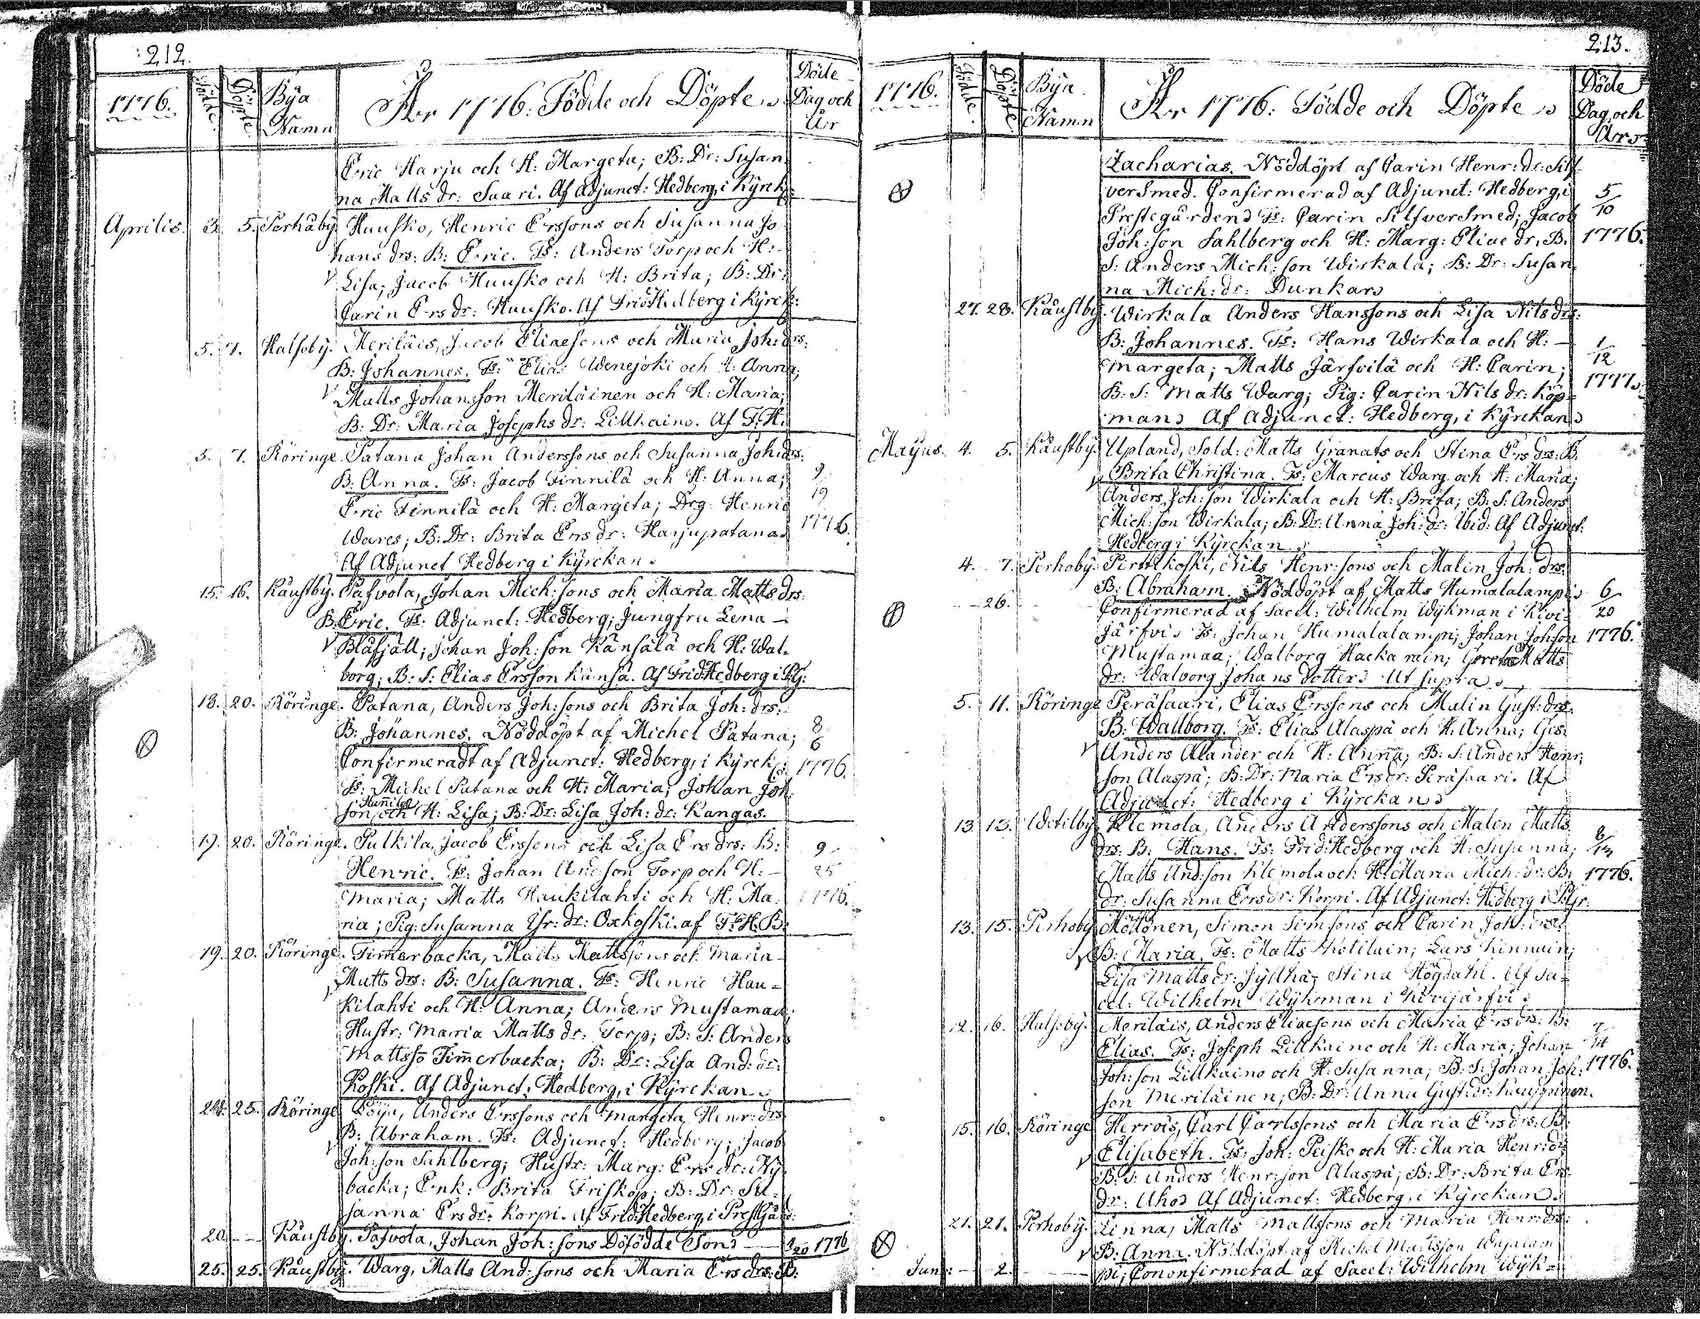 212.
1776.
Födde.
Döpte.
Bÿa Namn
År 1776: Födde och Döpte
Döde Dag och År
Eric Harju och H: Margeta; B: Dr: Susan
na Matts dr: Saari. Af Adjunct: Hedberg, i Kÿrck:
Aprilis. 3. 5. Perhåbÿ. Huusko, Henric Erssons och Susanna Jo
hans drs: B: Eric. Fs: Anders Torp och H:
Lisa; Jacob Huusko och H: Brita; B: Dr:
Carin Ers dr: Huusko. Af Frid: Hedberg i Kÿrck:
5. 7. Halsobÿ. Meriläis, Jacob Eliaesons och Maria Joh: drs:
B: Johannes. Fs: Elias Wenejoki och H: Anna;
Matts Johansson Meriläinen och H: Maria;
B: Dr: Maria Josephs dr: Lillkaino. Af F: H.
5. 7. Röringe. Patana Johan Anderssons och Susanna Joh: drs:
B: Anna. Fs: Jacob Finnilä och H: Anna;
Eric Finnilä och H: Margeta; Drg: Henric
Wares; B: Dr: Brita Ers dr: Harjupatana.
1776.
Af Adjunct Hedberg i Kÿrckan.
15. 16. Käustbÿ. Pafvola, Johan Mich: sons och Maria Matts drs:
B: Eric. Fs: Adjunct: Hedberg; Jungfru Lena
Blåfjäll; Johan Joh: son Känsälä och H: Wal
borg; B: S: Elias Ersson Känsä. Af Frid: Hedberg i
18. 20. Röringe. Patana, Anders Joh: sons och Brita Joh: drs:
B: Johannes. Nöddöpt af Michel Patana; 8/6
Confirmeradt af Adjunct: Hedberg, i Kÿrck: 1776.
Fs: Michel Patana och H: Maria; Johan Joh:
son och H: Lisa; B: Dr: Lisa Joh: dr: Kangas.
17. 20. Röringe. Pulkila, Jacob Erssons och Lisa Ers drs: B: 9/25
Henric. Fs: Johan And: son Torp och H:
Maria; Matts Haukilahti och H: Ma 1776.
ria; Pig: Susanna dr: Oxkoski. af F: H. B:
19. 20. Röringe. Timerbacka, Matts Mattssons och Maria
Matts drs: B: Susanna. Fs: Henric Hau
kilahti och H: Anna; Anders Mustamaa;
Hustr: Maria Matts dr: Torp; B: S: Anders
Mattsso Timerbacka; B: Dr: Lisa And: dr:
Koski. Af Adjunct: Hedberg, i Kÿrckan.
24. 25. Röringe. Anders Erssons och Margeta Henr: drs
B: Abraham. Fs: Adjunct: Hedberg; Jacob
Joh: son Sahlberg; Hustr: Marg: Ers dr: Nÿ
backa; Enk: Brita Friskop; B: Dr: Su
sanna Ers dr: Korpi. Af Frid: Hedberg, i Prestgård
20. Käustbÿ. Pafvola, Johan Joh: sons Dödfödde Son 4/20 1776
25. 25. Käustbÿ. Warg, Matts And: sons och Maria Ers drs: B:
213.
1776.
Födde.
Döpte
Bÿa Namn
År 1776: Födde och Döpte
Döde Dag och Års
Zacharias. Nöddöpt af Carin Henr: dr: Silf
versmed. Confirmerad af Adjunct: Hedberg, i 5/10
Prestegården. Fs: Carin Silfversmed; Jacob
Joh: son Sahlberg och H: Marg: Eliae dr; B. 1776.
S: Anders Mich: son Wirkala; B: Dr: Susan
na Mich: dr: Dunkars
27. 28. Käustbÿ. Wirkala Anders Hanssons och Lisa Nils drs:
B: Johannes. Fs: Hans Wirkala och H: 1/12
Margeta; Matts Järfvilä och H: Carin; 1777.
B: S: Matts Warg; Pig: Carin Nils dr: Köp
mans Af Adjunct: Hedberg, i Kÿrckan
Majus. 4. 5. Käustbÿ. Upland, Sold: Matts Granats och Stina Ers drs: B.
Brita Christina. Fs: Marcus Warg och H: Maria;
Anders Joh: son Wirkala och H: Brita; B: S: Anders
Mich: son Wirkala; B: Dr: Anna Joh: dr: ibid: Af Adjunct:
Hedberg i Kÿrckan
4. 7. Perhobÿ. Nils Henr: sons och Malin Joh: drs:
26. B: Abraham. Nöddöpt af Matts Humalalampi 6/20
Confirmerad af Sacell: Wilhelm Wÿkman i Kivi
järfvi Fs: Johan Humalalampi; Johan Johson 1776.
Mustamaa; Walborg Hackarain; Greta Matts
dr: Walborg Johans dotter. Ut supra.
5. 11. Röringe Peräsaari, Elias Erssons och Malin Gust: drs.
B: Wallborg. Fs: Elias Alaspä och H: Anna;
Anders Alander och H: Anna; B: S: Anders Henr:
son Alaspä; B: Dr: Maria Ers dr: Peräsaari. Af
Adjunct: Hedberg i Kÿrckan
13. 13. Wetilbÿ. Klemola, Anders Anderssons och Malin Matts
drs: B: Hans. Fs: Frid: Hedberg och H: Susanna;
Matts And: son Klemola och H: Maria Mich: dr: B: 1776.
dr: Susanna Ers dr: Korpi. Af Adjunct: Hedberg i
13. 15. Perhobÿ Möttönen, Simon Simsons och Carin Joh: drs:
B: Maria. Fs: Matts Lars Kinnuin;
Lisa Matts dr: Stina Högdahl. Af Sa
cel: Wilhelm Wÿkman i Kivijärfvi
12. 16. Halsobÿ. Meriläis, Anders Eliaesons och Maria Ers drs: B:
Elias. Fs: Joseph Lillkaino och H: Maria; Johan
Joh: son Lillkaino och H: Susanna; B: S: Johan Joh: 1776.
son Meriläinen; B: Dr: Anna Gust: dr: Kauppinen.
15. 16. Röringe Herrois, Carl Carlssons och Maria Ers drs: B:
Elisabeth. Fs: Joh: Peisko och H: Maria Henr: dr:
B: S: Anders Henr: son Alaspä; B: Dr: Brita Ers
dr: Aho. Af Adjunct: Hedberg, i Kÿrckan.
21. 21. Perhobÿ. Linna, Matts Mattssons och Maria Henr: drs:
B: Anna. Nöddöpt af Michel Mattsson
Jun: 2. pi; Cononfirmerad af Sacel: Wilhelm Wÿk